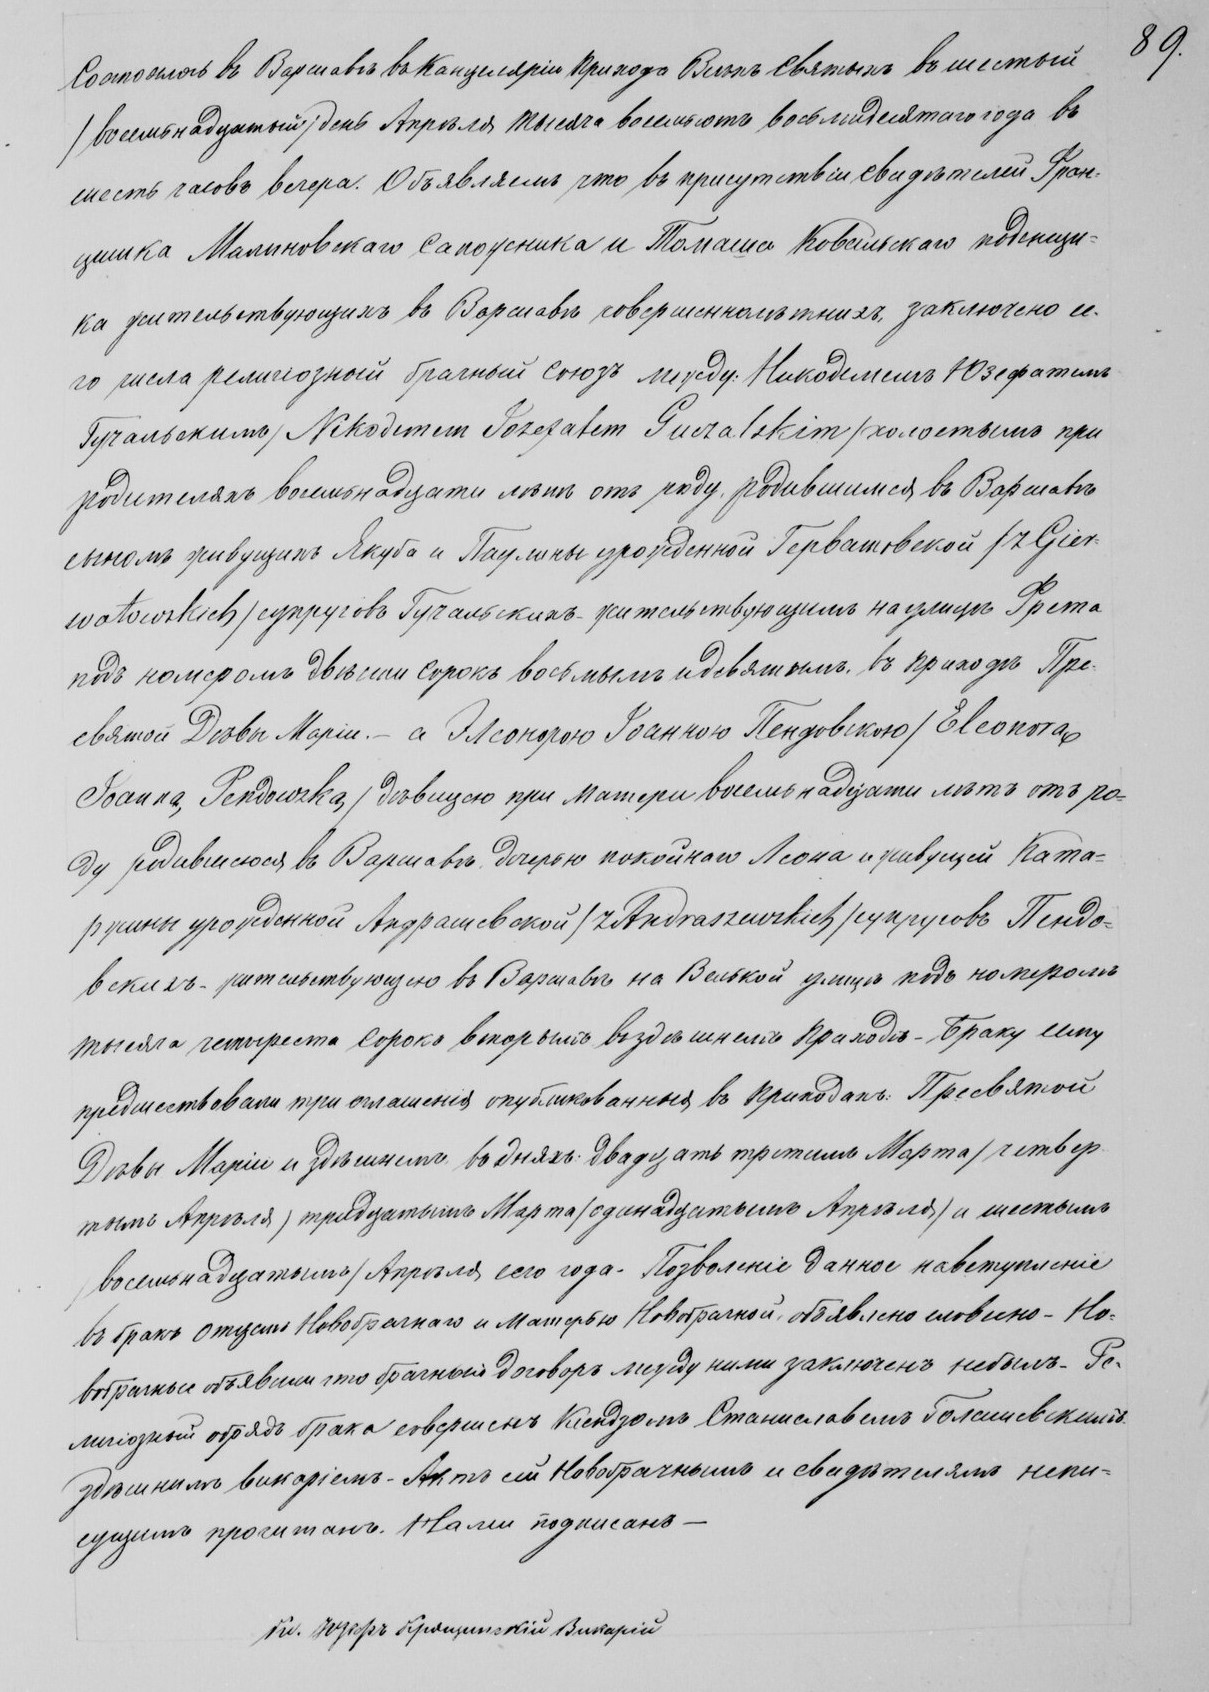 89.
Состоялось въ Варшавѣ въ Канцеляріи прихода Всѣхъ Святыхъ въ шестый
/восемьнадцатый/ день Апрѣля тысяча восемьсотъ восьмидесятаго года въ
шесть часовъ вечера. Объявляемъ что въ присутствіи свидѣтелей Фран-
цишка Малиновскаго сапожника и Томаша Ковальскаго поденщи-
ка жительствующихъ въ Варшавѣ совершеннолѣтнихъ, заключено се-
го числа религіозный брачный союзъ между: Никодемемъ Юзефатемъ
Гучальскимъ /Nikodemem Jozefatem Guczalskim/ холостымъ при
родителяхъ восемьнадцати лѣтъ отъ роду, родившимся въ Варшавѣ
сыномъ живущихъ Якуба и Паулины урожденной Герватовской /z Gier-
watowskich/ супруговъ Гучальскихъ - жительствующимъ на улицѣ Фрета
подъ номеромъ двѣсти сорокъ восьмымъ и девятымъ. въ приходѣ Пре-
святой Дѣвы Маріи. - а Элеонорою Іоанною Пендовскою /Eleonorą
Joanną Pendowską/ дѣвицею при матери восемьнадцати лѣтъ отъ ро-
ду родившеюся въ Варшавѣ дочерью покойнаго Леона и живущей Ката-
ржины урожденной Андрашевской /z Andraszewskich/ супруговъ Пендо-
вскихъ - жительствующею въ Варшавѣ на Велькой улицѣ подъ номеромъ
тысяча четыреста сорокъ вторымъ въ здѣшнемъ приходѣ - Браку сему
предшествовали три оглашенія опубликованныя въ приходахъ: Пресвятой
Дѣвы Маріи и здѣшнемъ въ дняхъ: двадцать третьимъ Марта /четвер
тымъ Апрѣля/ тридцатымъ Марта /одинадцатымъ Апрѣля/ и шестымъ
/восемьнадцатымъ/ Апрѣля сего года - Позволеніе данное на вступленіе
въ бракъ отцемъ Новобрачнаго и матерью Новобрачной, объявлено словесно - Но-
вобрачные объявили что брачный договоръ между ними заключенъ небылъ - Ре-
лигіозный обрядъ брака совершенъ Ксендзомъ Станиславемъ Голашевскимъ
здѣшнимъ викаріемъ - Актъ сей Новобрачнымъ и свидѣтелямъ непи-
сущимъ прочитанъ. Нами подписанъ —
Кс. Юзефъ Викарій